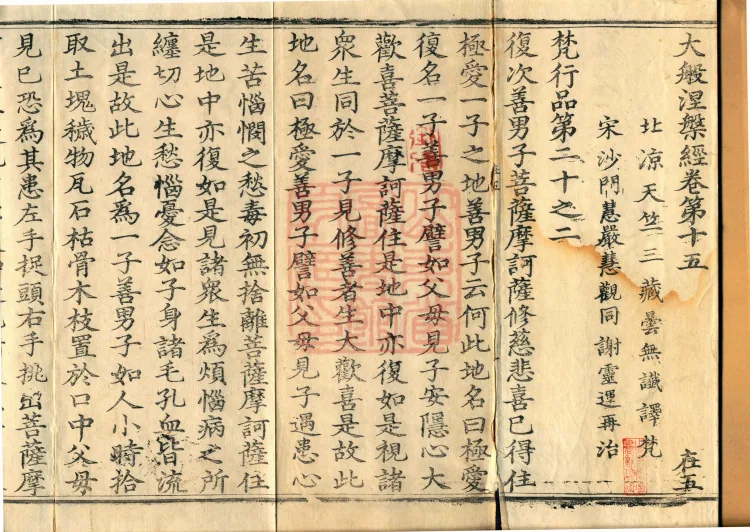 大般涅槃經卷第十五
在五
北涼天竺三藏曇無讖譯梵
宋沙門慧嚴慧觀同謝靈運再治
梵行品第二十之二
復次善男子菩薩摩訶薩修慈悲喜已得住
極愛一子之地善男子云何此地名曰極愛
復名一子善男子譬如父母見子安隱心大
歡喜菩薩摩訶薩住是地中亦復如是視諸
衆生同於一子見修善者生大歡喜是故此
地名曰極愛善男子譬如父母見子遇患心
生苦惱愍之愁毒初無捨離菩薩摩訶薩住
是地中亦復如是見諸衆生爲煩惱病之所
纏切心生愁惱憂念如子身諸毛孔血皆流
出是故此地名爲一子善男子如人小時拾
取土塊穢物瓦石枯骨木枝置於口中父母
見已恐爲其患左手捉頭右手挑出菩薩摩